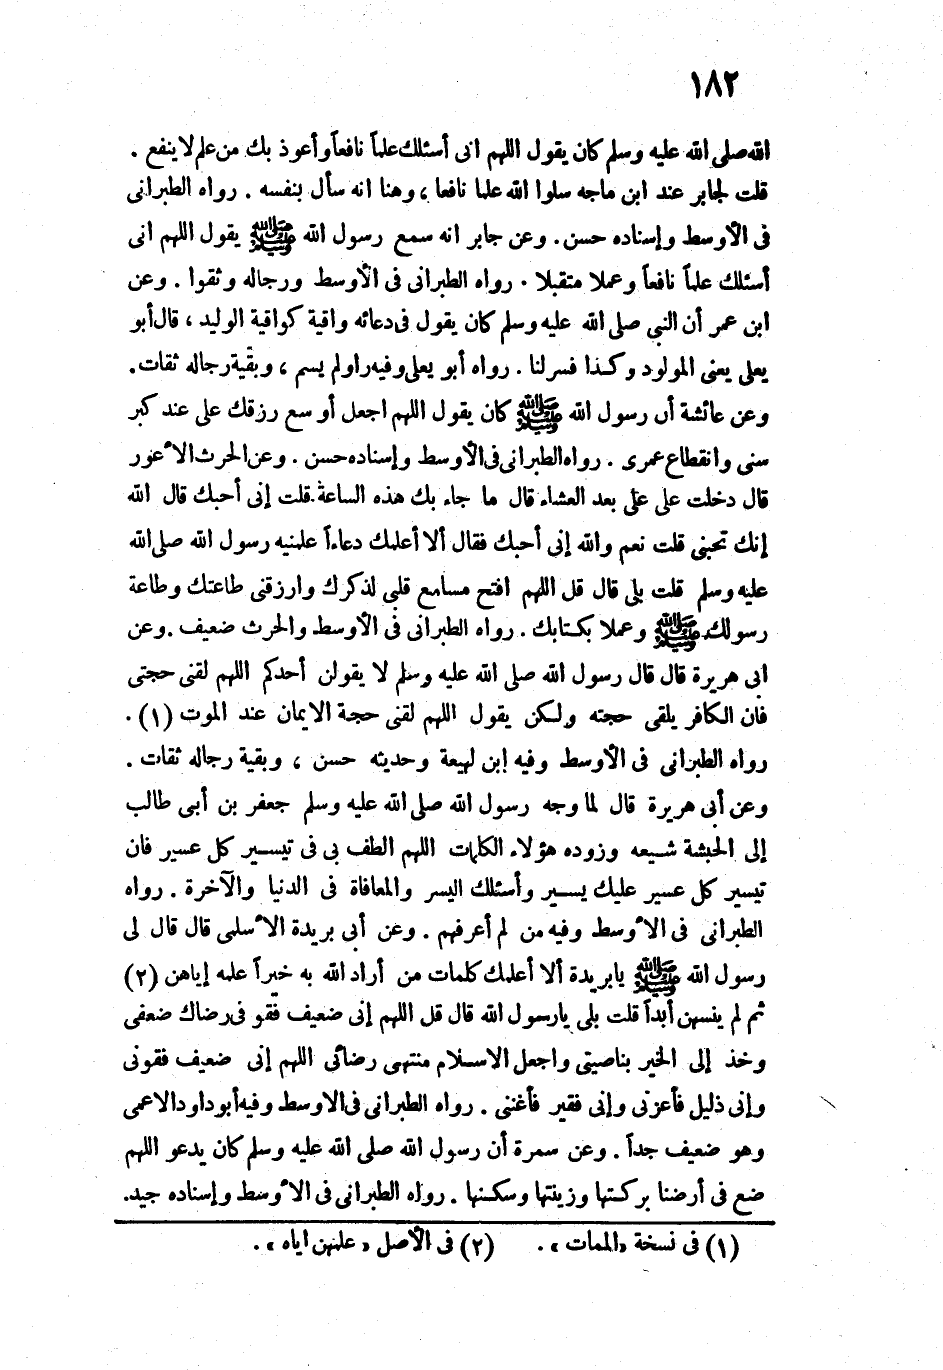 ١٨٢
الله صلى الله عليه وسلم كان يقول اللهم انى أسئلك علماً نافعاً وأعوذ بك من علم لا ينفع .
قلت لجابر عند ابن ماجه سلوا الله علما نافعا ، وهنا انه سأل بنفسه . رواه الطبرانى
فى الأوسط وإسناده حسن . وعن جابر انه سمع رسول الله ﷺ يقول اللهم انى
أسئلك علماً نافعاً وعملا متقبلا . رواه الطبرانى فى الأوسط ورجاله وثقوا . وعن
ابن عمر أن النبى صلى الله عليه وسلم كان يقول فى دعائه واقية كواقية الوليد ، قال أبو
يعلى يعنى المولود وكذا فسر لنا . رواه أبو يعلى وفيه راو لم يسم ، وبقية رجاله ثقات .
وعن عائشة أن رسول الله ﷺ كان يقول اللهم اجعل أوسع رزقك على عند كبر
سنى وانقطاع عمرى . رواه الطبرانى فى الأوسط وإسناده حسن . وعن الحرث الأعور
قال دخلت على على بعد العشاء قال ما جاء بك هذه الساعة قلت إنى أحبك قال الله
إنك تحبنى قلت نعم والله إنى أحبك فقال ألا أعلمك دعاءاً علمنيه رسول الله صلى الله
عليه وسلم قلت بلى قال قل اللهم افتح مسامع قلبى لذكرك وارزقنى طاعتك وطاعة
رسولك ﷺ وعملا بكتابك . رواه الطبرانى فى الأوسط والحرث ضعيف . وعن
ابى هريرة قال قال رسول الله صلى الله عليه وسلم لا يقولن أحدكم اللهم لقنى حجتى
فان الكافر يلقى حجته ولكن يقول اللهم لقنى حجة الايمان عند الموت (١) .
رواه الطبرانى فى الأوسط وفيه إبن لهيعة وحديثه حسن ، وبقية رجاله ثقات .
وعن أبى هريرة قال لما وجه رسول الله صلى الله عليه وسلم جعفر بن أبى طالب
إلى الحبشة شيعه وزوده هؤلاء الكلمات اللهم الطف بى فى تيسير كل عسير فان
تيسير كل عسير عليك يسير وأسئلك اليسر والمعافاة فى الدنيا والآخرة . رواه
الطبرانى فى الأوسط وفيه من لم أعرفهم . وعن أبى بريدة الأسلمى قال قال لى
رسول الله ﷺ يابريدة ألا أعلمك كلمات من أراد الله به خيراً علمه إياهن (٢)
ثم لم ينسهن أبداً قلت بلى يارسول الله قال قل اللهم إنى ضعيف فقو فى رضاك ضعفى
وخذ إلى الخير بناصيتى واجعل الاسلام منتهى رضائى اللهم إنى ضعيف فقونى
وإنى ذليل فأعزنى وإنى فقير فأغننى . رواه الطبرانى فى الاوسط وفيه أبو داود الاعمى
وهو ضعيف جداً . وعن سمرة أن رسول الله صلى الله عليه وسلم كان يدعو اللهم
ضع فى أرضنا بركتها وزينتها وسكنها . رواه الطبرانى فى الأوسط وإسناده جيد.
(١) فى نسخة «الممات» . (٢) فى الأصل «علمهن اياه» .